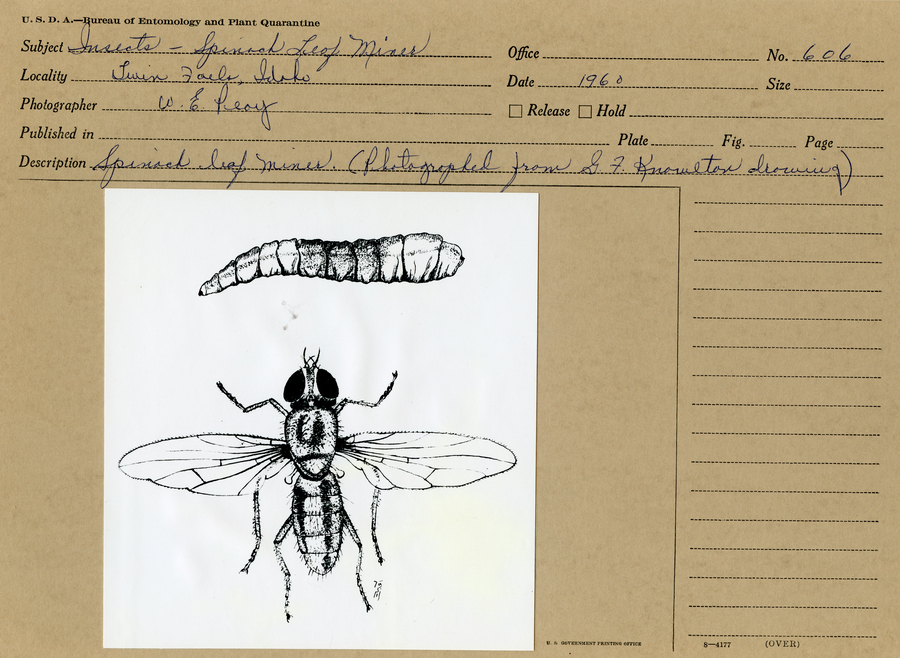 U. S. D. A.—Bureau of Entomology and Plant Quarantine
Subject Insects - Spinach Leaf Miner Office No. 606
Locality Twin Falls, Idaho Date 1960 Size
Photographer W. E. Peay Release Hold
Published in Plate Fig. Page
Description Spinach leaf miner. (Photographed from G. F. Knowlton drawing)
U. S. GOVERNMENT PRINTING OFFICE 8—4177 (OVER)